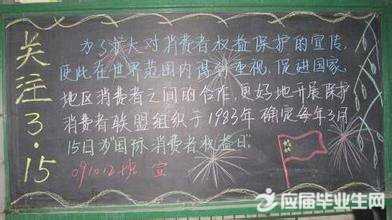 关注3·15
为了扩大对消费者权益保护的宣传,
使此在世界范围内得到重视,促进国家、
地区消费者之间的合作,更好地开展保护
消费者联盟组织于1983年确定每年3月
15日为国际消费者权益日.
091012班 宣
应届毕业生网